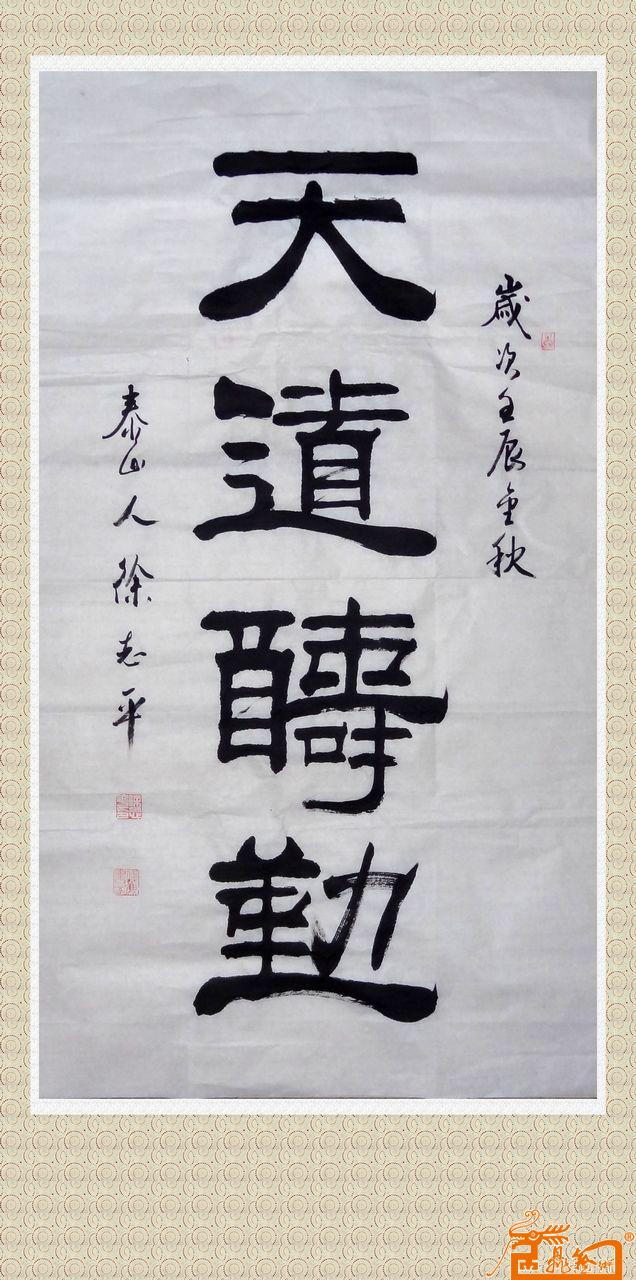 歲次壬辰金秋
天道酬勤
泰山人徐志平